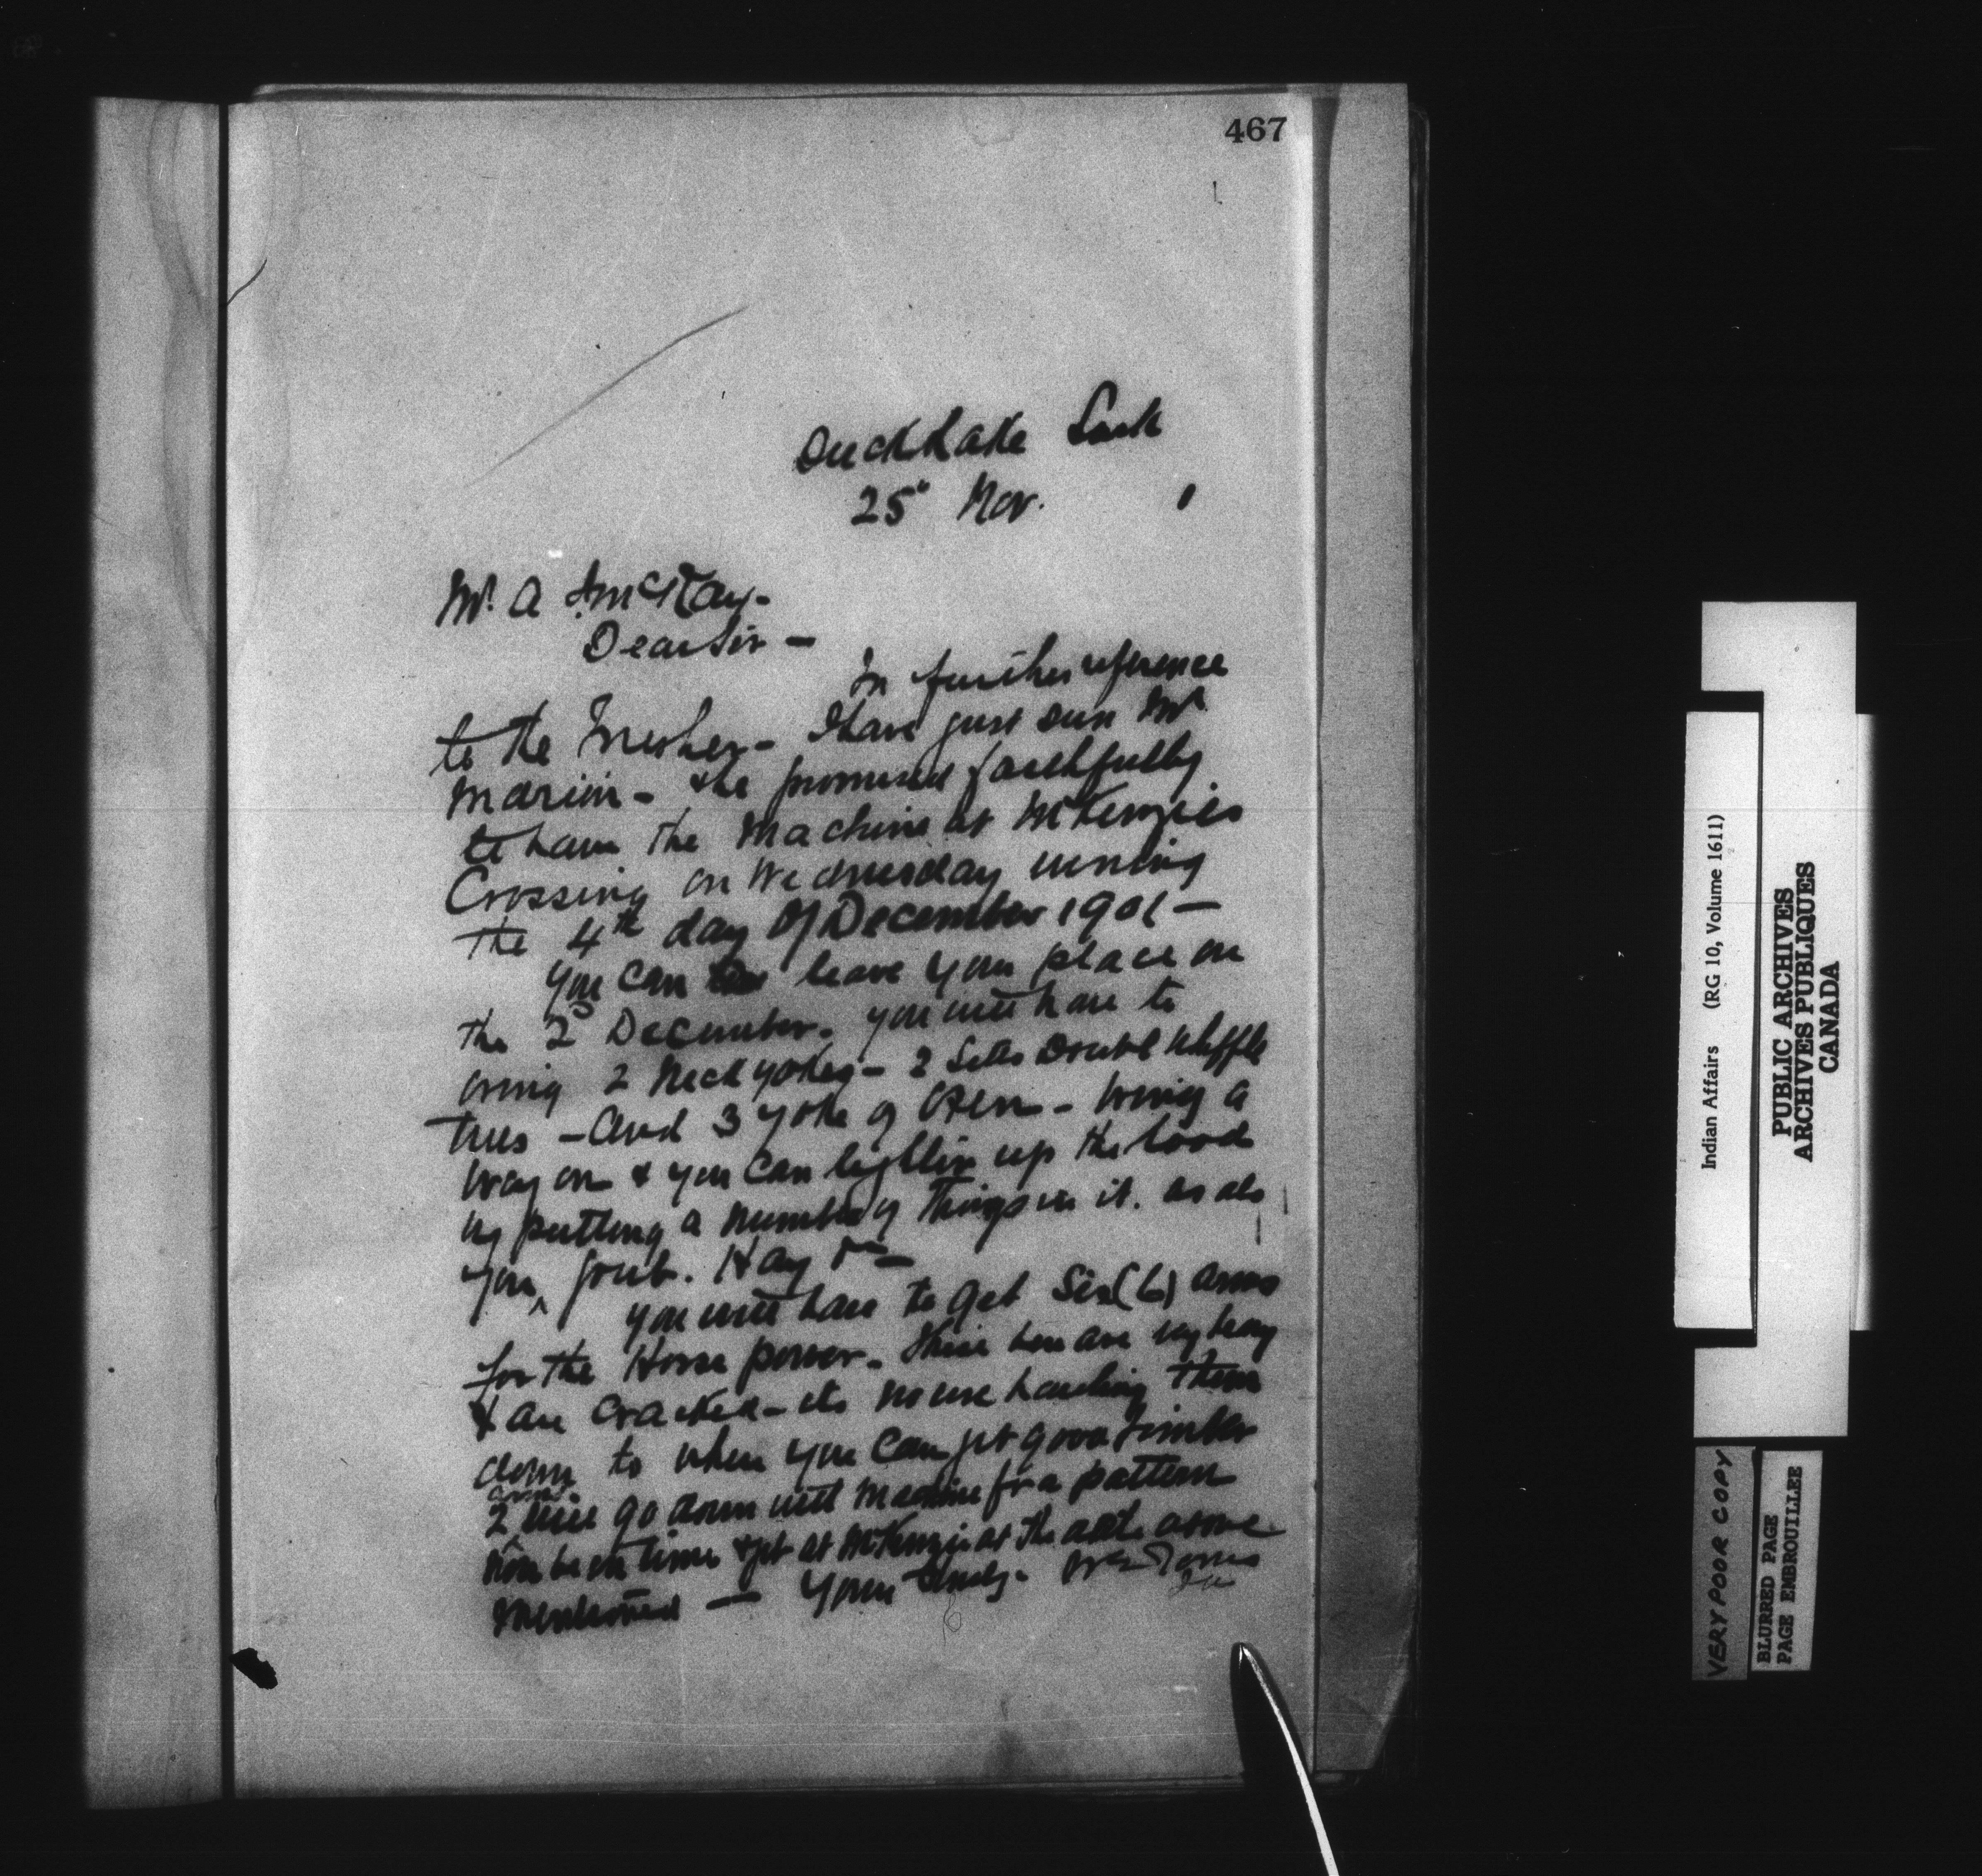 467
Duck Lake Sask
25" Nov. 1
Mr. A J. McKay-
Dear Sir -
In further reference
to the Tresher - I have just seen Mr
Marion - & he promised faithfully
to have the Machine at McKenzies
Crossing on Wednesday evening
the 4th day Of December 1901 -
you can leave your place on
the 2d December. you will have to
bring 2 Neck yokes - 2 Setts Double Whiffle
trees - And 3 yoke of Oxen - bring a
wagon & you can lighten up the load
by putting a number of things in it. as also
your grub. Hay &c -
you will have to get Six (6) arms
for the Horse power. These here are very heavy
& are cracked - its no use hauling them
down to where you can get good timber
arms.
2 will go down with machine for a pattern
Now be on time & get at McKenzie at the date above
Mentioned - Yours truly. Wm Jones
Indian Affairs (RG 10, Volume 1611)
PUBLIC ARCHIVES
ARCHIVES PUBLIQUES
CANADA
VERY POOR COPY
BLURRED PAGE
PAGE EMBROUILLEE